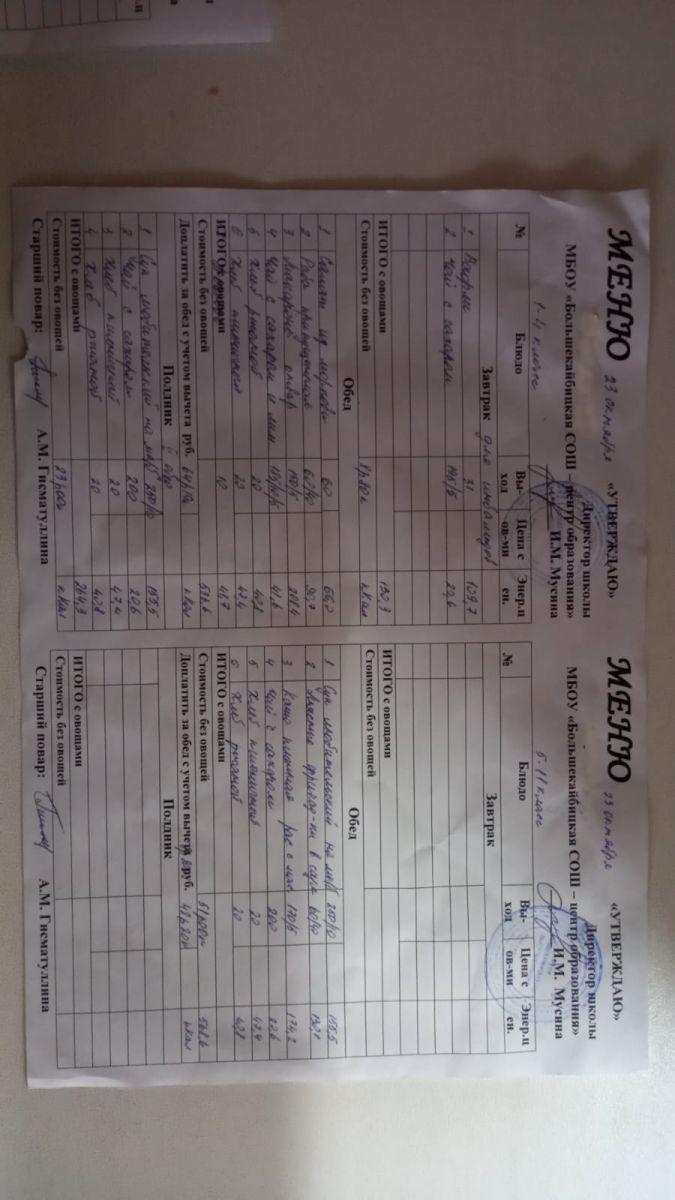 МЕНЮ 23 октября
«УТВЕРЖДАЮ»
Директор школы
МБОУ «Большекайбицкая СОШ – центр образования» И.М. Мусина
1-4 класс
№ Блюдо Вы-ход Цена с ов-ми Энер.ц ен.
Завтрак для инвалидов
1 Вафли 31 109,7
2 Чай с сахаром 195/5 22,6
ИТОГО с овощами 130,3
Стоимость без овощей ккал
Обед
1 Салат из моркови 60
2 Рыба припущенная
3 Макароны отвар
4 Чай с сахаром и лим. 41,6
5 Хлеб ржаной 20 40,8
6 Хлеб пшеничный 20 47,4
ИТОГО с овощами
Стоимость без овощей
Доплатить за обед с учетом вычета руб. ккал
Полдник
1 Суп любительский на м/б 250/10 155,5
2 Чай с сахаром 200 20,6
3 Хлеб пшеничный 20 47,4
4 Хлеб ржаной 20 40,8
ИТОГО с овощами 264,3
Стоимость без овощей ккал
Старший повар: А.М. Гисматуллина
МЕНЮ 23 октября
«УТВЕРЖДАЮ»
Директор школы
МБОУ «Большекайбицкая СОШ – центр образования» И.М. Мусина
5-11 класс
№ Блюдо Вы-ход Цена с ов-ми Энер.ц ен.
Завтрак
ИТОГО с овощами
Стоимость без овощей
Обед
1 Суп любительский на м/б 250/10 155,5
2 в соусе 60/40
3 Каша пшенная рас с мас 170/5 174,2
4 Чай с сахаром 200 22,6
5 Хлеб пшеничный 20 47,4
6 Хлеб ржаной 20 40,8
ИТОГО с овощами
Стоимость без овощей
Доплатить за обед с учетом вычета руб. ккал
Полдник
ИТОГО с овощами
Стоимость без овощей
Старший повар: А.М. Гисматуллина